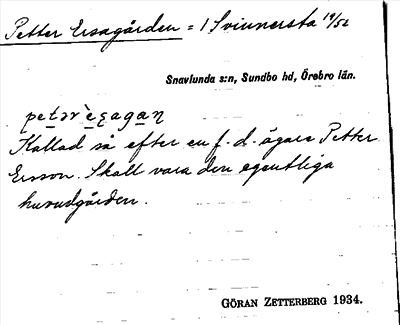 Petter Ersagården = 1 Svinnersta 19/56
Snavlunda s:n, Sundbo hd, Örebro län.
Kallad så efter en f. d. ägare Petter
Ersson. Skall vara den egentliga
huvudgården.
GÖRAN ZETTERBERG 1934.